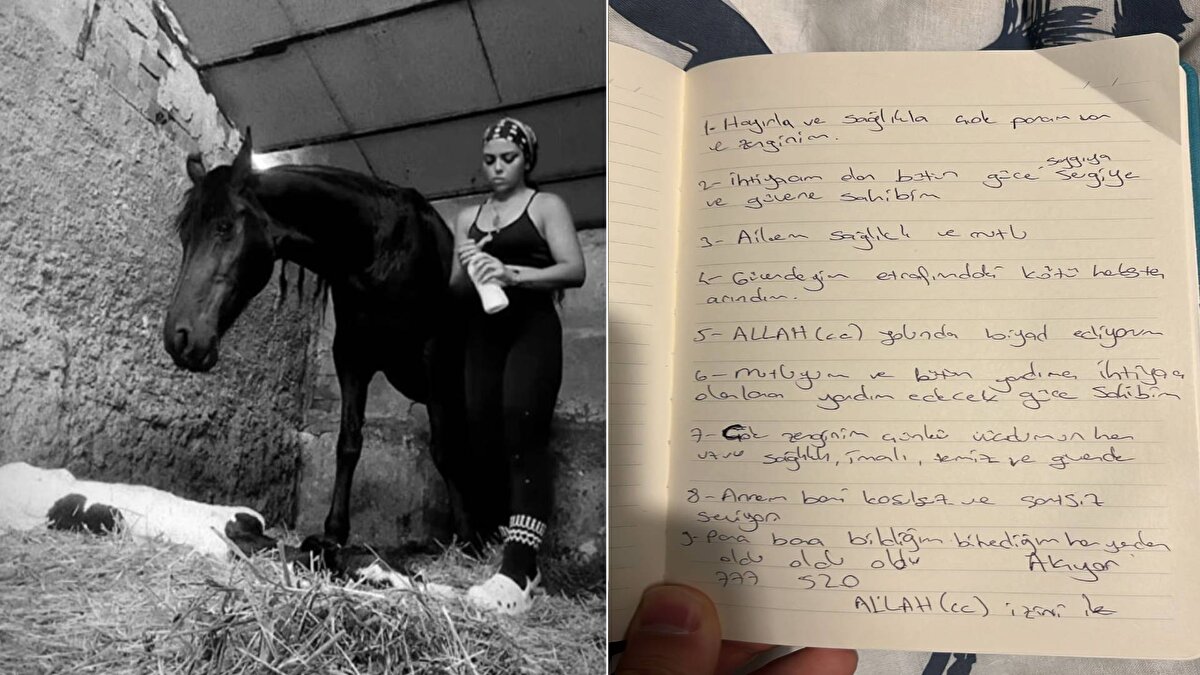 1- Hayırla ve sağlıkla çok param var
ve zenginim.
saygıya
2- ihtiyacım olan bütün güce sevgiye
ve güvene sahibim
3- Ailem sağlıklı ve mutlu
4- Güvendeyim etrafımdaki kötü
arındım.
5- ALLAH(cc) yolunda ediyorum
6- mutluyum ve bütün yardıma ihtiyacı
olanlara yardım edecek güce sahibim
7- Çok zenginim çünkü vücudumun her
sağlıklı, temiz ve güvende
8- Annem beni ve
seviyor
9- Para bana bildiğim bilmediğim her yerden
oldu oldu oldu Akıyor
777 520
ALLAH(cc) izni ile